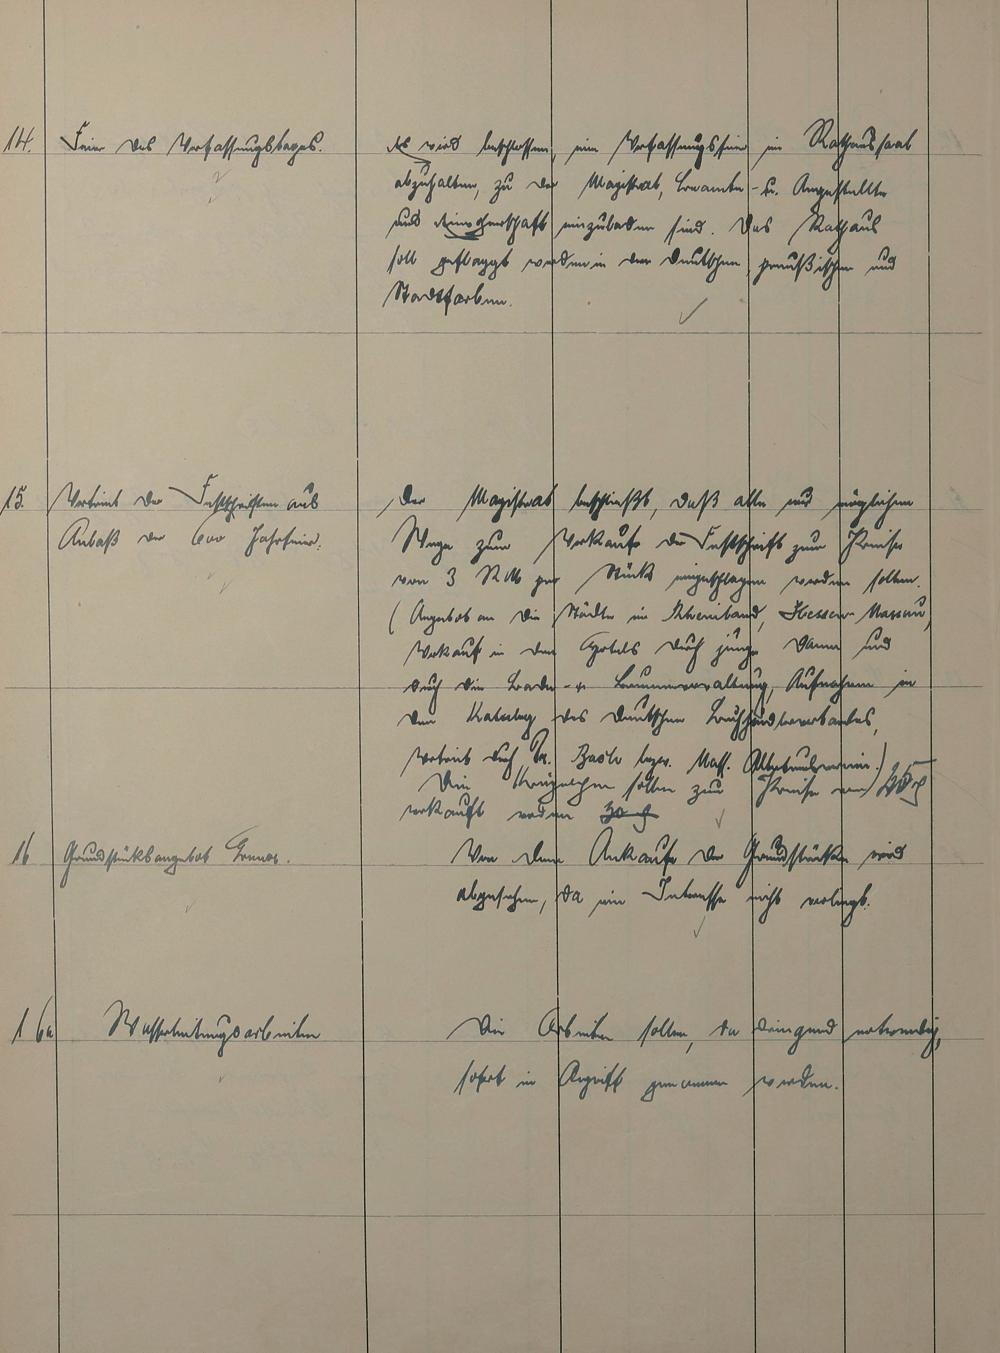 14.
Feier des Verfassungstages.
Es wird beschlossen, eine Verfassungsfeier im Rathaussaal
abzuhalten, zu der Magistrat, Beamte- u. Angestellte
und Einwohnerschaft einzuladen sind. Das Rathaus
soll geflaggt werden in den Deutschen, preußischen und
Stadtfarben.
15.
Vertrieb der Festschriften aus
Anlaß der 600 Jahrfeier.
Der Magistrat beschließt, daß alle nur möglichen
Wege zum Verkaufe der Festschrift zum Preise
von 3 RM per Stück eingeschlagen werden sollen.
(Angebot an die Städte im Rheinland, Hessen-Nassau,
Verkauf in den Hotels durch junge Damen und
durch die Bade- u. Brunnenverwaltung, Aufnahme in
den Katalog des Deutschen Buchhändlerverbandes,
Vertrieb durch bezw. Nass. Altertumsverein.)
Die sollen zum Preise von
verkauft werden 30 ₰
16
Grundstücksangebot
Von dem Ankaufe der Grundstücke wird
abgesehen, da ein Interesse nicht vorliegt.
16a
Wasserleitungsarbeiten
Die Arbeiten sollen, da dringend notwendig,
sofort in Angriff genommen werden.